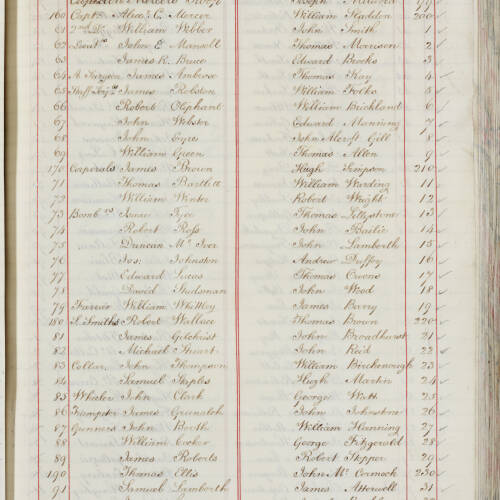 Captain Mercers Troop
Joseph 99
160 Capt. Alex. C. Mercer
William Haddon 200
61 2nd Do. William Webber
John Smith 1
62 Lieuts. John E. Maxwell
Thomas Morrison 2
63 James R. Bruce
Edward Brooks 3
64 A. Surgeon James Ambrose
Thomas Kay 4
65 Staff Serjts. James Robston
William Folks 5
66 Robert Oliphant
William Brickland 6
67 John Webster
Edward Manning 7
68 John Eyres
John Alcroft Gill 8
69 William Green
Thomas Allen 9
170 Corporals James Brown
Hugh Simpson 210
71 Thomas Bartlett
William Warding 11
72 William Winter
Robert Wright 12
73 Bombrs. Isaac Tyce
Thomas Tellystone 13
74 Robert Ross
John Bailie 14
75 Duncan Mc. Iver
John Lamberth 15
76 Jos: Johnston
Andrew Duffey 16
77 Edward Lucas
Thomas Owens 17
78 David Studsman
John Wood 18
79 Farrier William Whittley
James Barry 19
180 S. Smiths Robert Wallace
Thomas Brown 220
81 James Gilchrist
John Broadhurst 21
82 Michael Stuart
John Reid 22
83 Collar John Thompson
William Birchenough 23
84 Samuel Staples
Hugh Martin 24
85 Wheeler John Clark
George Watt 25
86 Trumpeter James Greenalgh
John Johnstone 26
87 Gunners John Booth
William Henning 27
88 William Cooker
George Fitzgerald 28
89 James Roberts
Robert Stepper 29
190 Thomas Ellis
John Mc. Cormock 230
91 Samuel Lamborth
James Atterwell 31